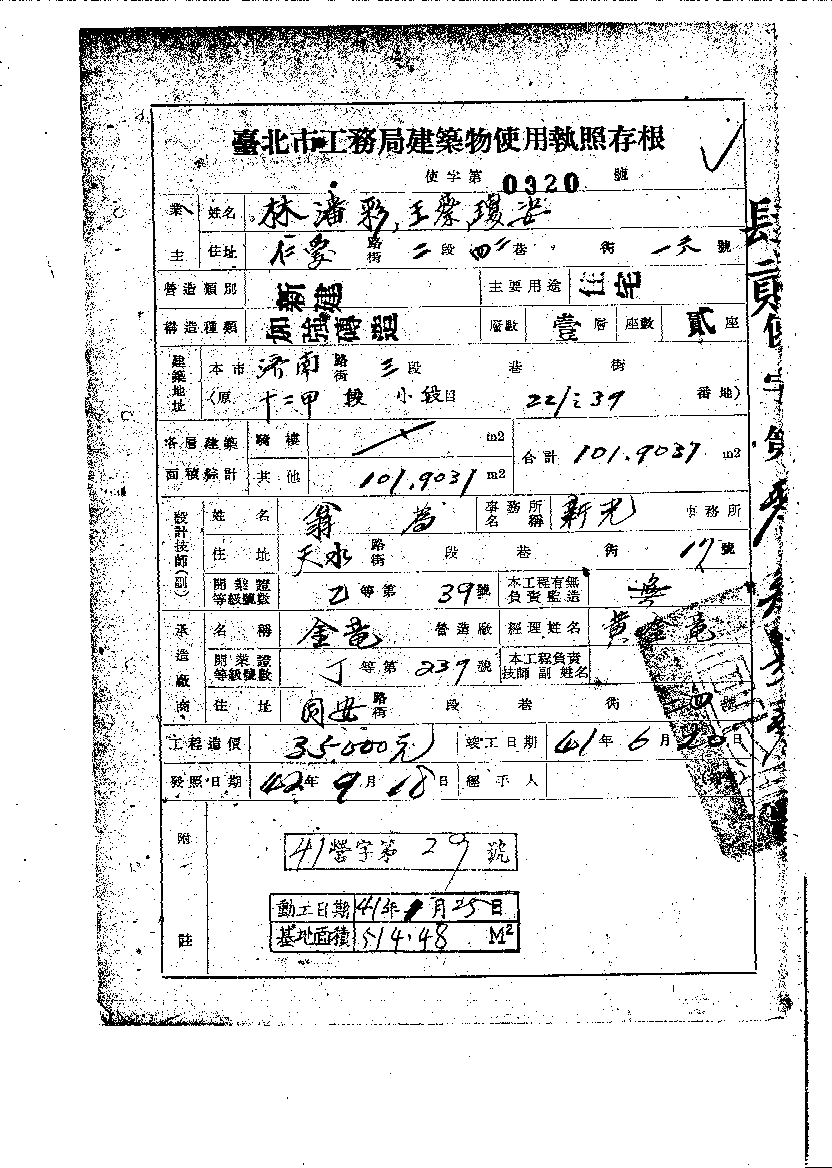 臺北市工務局建築物使用執照存根
使字第 0320 號
業主 姓名 林潘彩,王蔡瓊
住址 仁愛 路街 二段 四 巷 街 號
營造類別 新建 主要用途 住宅
構造種類 加強磚造 層數 壹層 座數 貳座
建築地址 本市 濟南 路街 三段 巷 街
(原 十二甲 段 小段 22/239 番地)
各層建築面積綜計 騎樓 m2 合計 101.9037 m2
其他 101.9037 m2
設計技師(副) 姓名 翁 事務所名稱 新光 事務所
住址 天水 路街 段 巷 街 17號
開業證等級號數 乙等第 39號 本工程有無負責監造 無
承造廠商 名稱 金竜 營造廠 經理姓名 黃 竜
開業證等級號數 丁等第 239號 本工程負責技師副姓名
住址 同安 路街 段 巷 街 四號
工程造價 35000元 竣工日期 41年6月20日
發照日期 42年9月18日 經手人
附註
41營字第 29 號
動工日期 41年1月25日
基地面積 514.48 M²